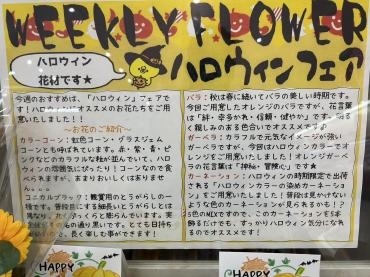 WEEKLY FLOWER
ハロウィン
花材です★
ハロウィンフェア
今週のおすすめは、「ハロウィン」フェアで
す！ハロウィンにオススメのお花たちをご
用意いたしました！！
～お花のご紹介～
カラーコーン：虹色コーン・グラスジェム
コーンとも呼れています。赤・紫・青・ピ
ンクなどのカラフルな粒が並んでいて、ハロ
ウィンの雰囲気にぴったり！コーンなので食
べられますが、あまりおいしくはありませ
ん。。。
コニカルブラック：観賞用のとうがらしの一
種です。普段目にする細長いとうがらしとは
異なり、
ぷっくらと膨らんでいます。実
の通り黒いです。とても日持ち
、長く楽しむ事ができます！
バラ：秋は春に続いてバラの美しい時期です。
今回ご用意したオレンジのバラですが、花言葉
は「絆・幸多かれ・信頼・健やか」です。明る
く親しみのある色合いでオススメですよ。
ガーベラ：カラフルで元気なイメージが強い
ガーベラですが、今回はハロウィンカラーでオ
レンジをご用意しました！オレンジガーベ
ラの花言葉は「神秘・冒険心」です★
カーネーション：ハロウィンの時期限定で出荷
される「ハロウィンカラーの染めカーネーショ
ン」をご用意いたしました！普段は見かけない
ような色のカーネーションが見られるのも！？
25色のMIXですので、このカーネーションを5本
飾るだけでも、すっかりハロウィン気分になれ
るのでオススメです！
HAPPY
HAPPY